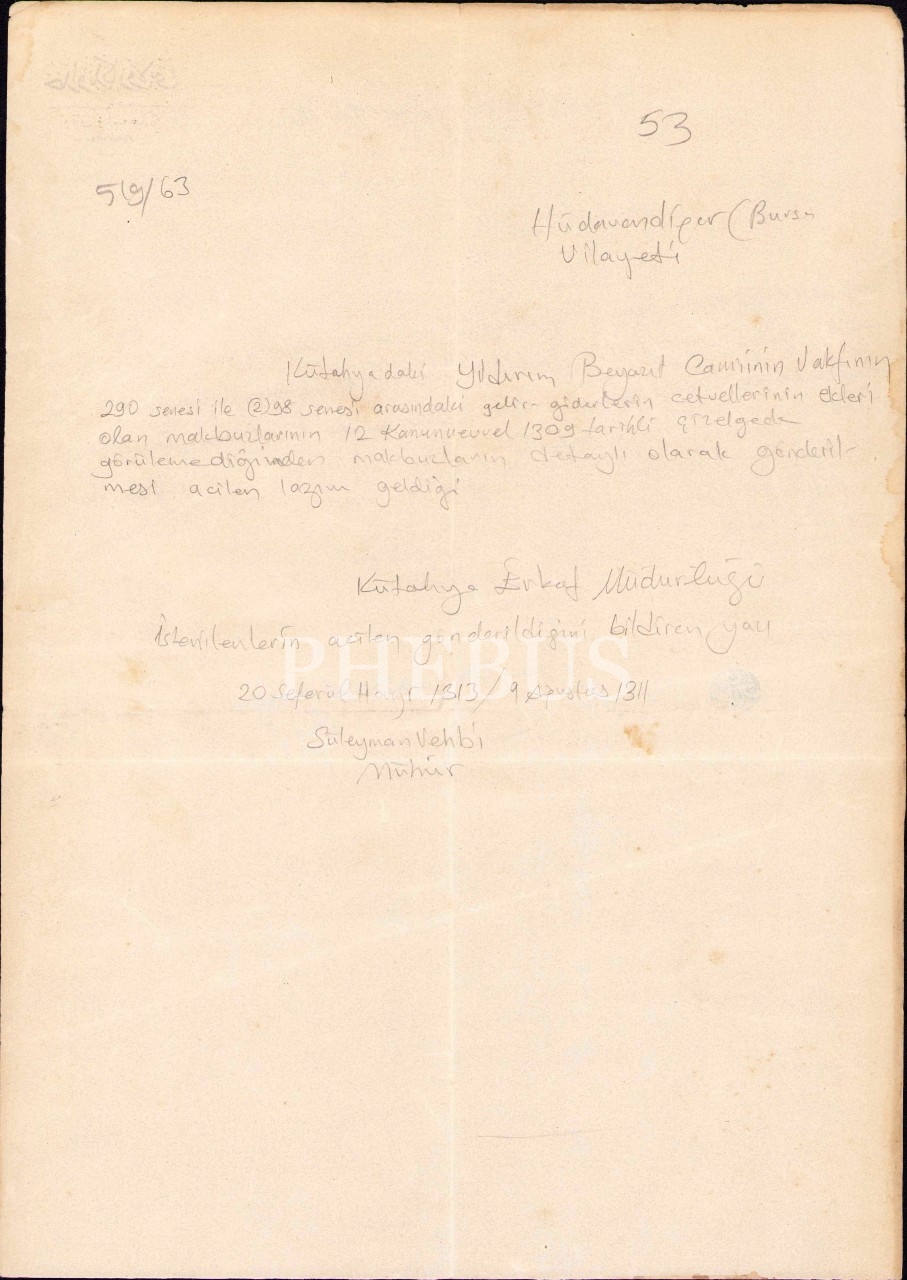 53
519/63
Hüdavendiger (Bursa
Vilayeti
Kütahyadaki Yıldırım Beyazıt Camiinin Vakfının
290 senesi ile (2)98 senesi arasındaki gelir-giderlerin cetvellerinin ekleri
olan makbuzlarının 12 Kanunuevvel 1309 tarihli çizelgede
görülemediğinden makbuzların detaylı olarak gönderil-
mesi acilen lazım geldiği
Kütahya Evkaf Müdürlüğü
İstenilenlerin acilen gönderildiğini bildiren yazı
PHEBUS
20 Seferül Hayr 1313/9 Agustus 1311
Süleyman Vehbi
Mühür